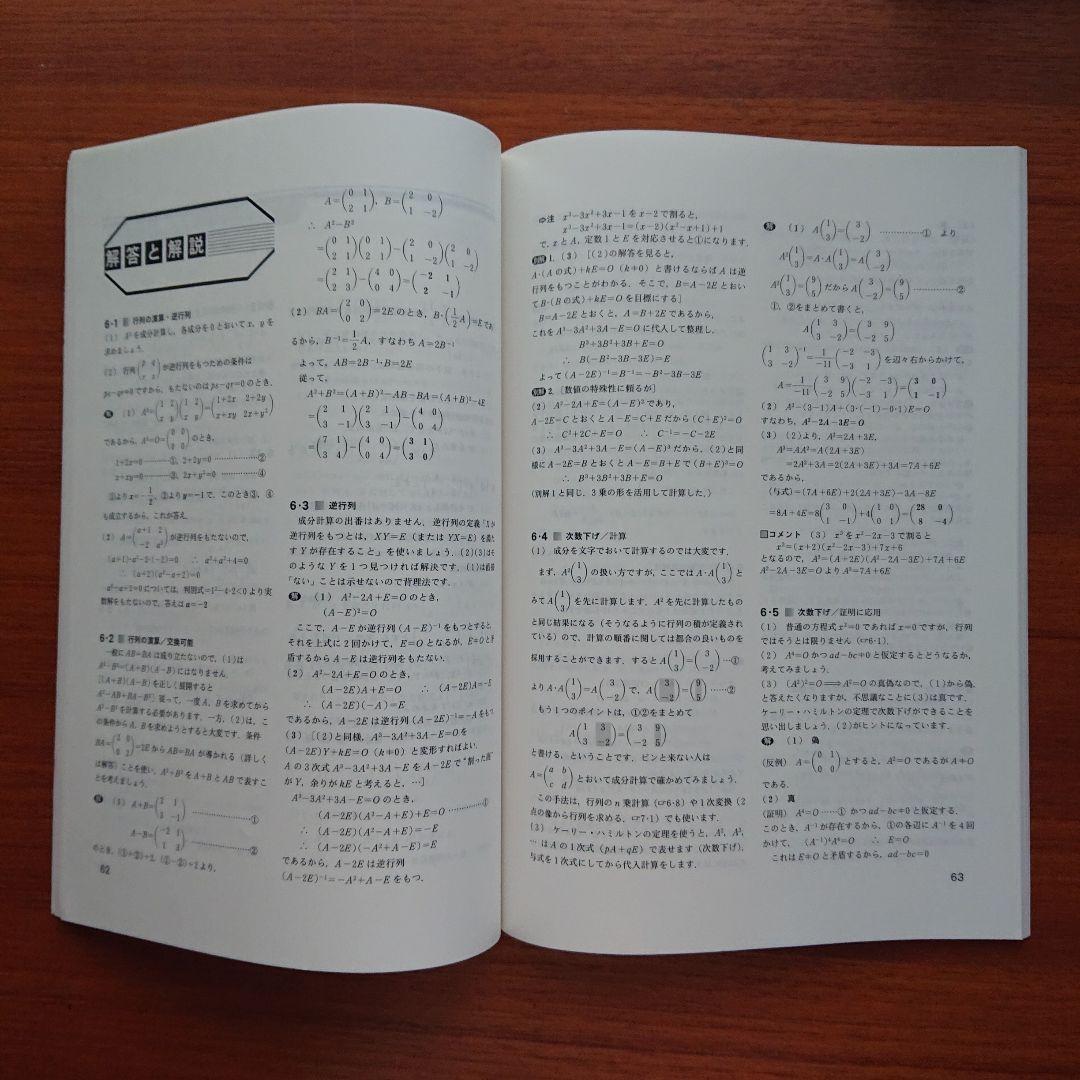 解答と解説
6・1 行列の演算・逆行列
(1) A²を成分計算し，各成分を0とおいてx，yを
求めましょう．
(2) 行列(p q / r s)が逆行列をもつための条件は
ps-qr≠0ですから，もたないのはps-qr=0のとき．
解 (1) A²=(1 2 / x y)(1 2 / x y)=(1+2x 2+2y / x+xy 2x+y²)
であるから，A²=O=(0 0 / 0 0)のとき，
1+2x=0 ①，2+2y=0 ②
x+xy=0 ③，2x+y²=0 ④
①よりx=-1/2，②よりy=-1で，このとき③，④
も成立するから，これが答え．
(2) A=(a+1 2 / -2 a²)が逆行列をもたないので，
(a+1)・a²-2・(-2)=0 ∴ a³+a²+4=0
∴ (a+2)(a²-a+2)=0
a²-a+2=0については，判別式=1²-4・2<0より実
数解をもたないので，答えはa=-2
6・2 行列の演算／交換可能
一般にAB=BAは成り立たないので，(1)は
A²-B²=(A+B)(A-B)にはなりません．
[(A+B)(A-B)を正しく展開すると
A²-AB+BA-B²] 従って，一度A，Bを求めてから
A²-B²を計算する必要があります．一方，(2)は，こ
の条件からA，Bを求めようとすると大変です．条件
BA=(2 0 / 0 2)=2EからAB=BAが導かれる（詳しく
は解答）ことを使い，A²+B²をA+BとABで表すこ
とを考えましょう．
解 (1) A+B=(2 1 / 3 -1) ①
A-B=(-2 1 / 1 3) ②
のとき，(①+②)÷2，(①-②)÷2より，
62
A=(0 1 / 2 1)，B=(2 0 / 1 -2)
∴ A²-B²
=(0 1 / 2 1)(0 1 / 2 1)-(2 0 / 1 -2)(2 0 / 1 -2)
=(2 1 / 2 3)-(4 0 / 0 4)=(-2 1 / 2 -1)
(2) BA=(2 0 / 0 2)=2Eのとき，B・(1/2 A)=Eであ
るから，B⁻¹=1/2 A，すなわちA=2B⁻¹
よって，AB=2B⁻¹・B=2E
従って，
A²+B²=(A+B)²-AB-BA=(A+B)²-4E
=(2 1 / 3 -1)(2 1 / 3 -1)-(4 0 / 0 4)
=(7 1 / 3 4)-(4 0 / 0 4)=(3 1 / 3 0)
6・3 逆行列
成分計算の出番はありません．逆行列の定義「Xが
逆行列をもつとは，XY=E（またはYX=E）を満た
すYが存在すること」を使いましょう．(2)(3)はそ
のようなYを1つ見つければ解決です．(1)は直接
「ない」ことは示せないので背理法です．
解 (1) A²-2A+E=Oのとき，
(A-E)²=O
ここで，A-Eが逆行列(A-E)⁻¹をもつとすると，
それを上式に2回かけて，E=Oとなるが，E≠Oと矛
盾するからA-Eは逆行列をもたない．
(2) A²-2A+E=Oのとき，
(A-2E)A+E=O ∴ (A-2E)A=-E
∴ (A-2E)(-A)=E
であるから，A-2Eは逆行列(A-2E)⁻¹=-Aをもつ．
(3) [(2)と同様，A³-3A²+3A-E=Oを
(A-2E)Y+kE=O (k≠0)と変形すればよい．
Aの3次式A³-3A²+3A-EをA-2Eで“割った商”
がY，余りがkEと考えると，…]
A³-3A²+3A-E=Oのとき，
(A-2E)(A²-A+E)+E=O ①
∴ (A-2E)(A²-A+E)=-E
∴ (A-2E)(-A²+A-E)=E
であるから，A-2Eは逆行列
(A-2E)⁻¹=-A²+A-Eをもつ．
⇨注 x³-3x²+3x-1をx-2で割ると，
x³-3x²+3x-1=(x-2)(x²-x+1)+1
で，xとA，定数1とEを対応させると①になります．
別解1．(3) [(2)の解答を見ると，
A・(Aの式)+kE=O (k≠0)と書けるならばAは逆
行列をもつことがわかる．そこで，B=A-2Eとおい
てB・(Bの式)+kE=Oを目標にする]
B=A-2Eとおくと，A=B+2Eであるから，
これをA³-3A²+3A-E=Oに代入して整理し，
B³+3B²+3B+E=O
∴ B(-B²-3B-3E)=E
よって(A-2E)⁻¹=B⁻¹=-B²-3B-3E
別解2．[数値の特殊性に頼るが]
(2) A²-2A+E=(A-E)²であり，
A-2E=CとおくとA-E=C+Eだから(C+E)²=O
∴ C²+2C+E=O ∴ C⁻¹=-C-2E
(3) A³-3A²+3A-E=(A-E)³だから，(2)と同
様にA-2E=BとおくとA-E=B+Eで(B+E)³=O
∴ B³+3B²+3B+E=O
（別解1と同じ．3乗の形を活用して計算した．）
6・4 次数下げ／計算
(1) 成分を文字でおいて計算するのでは大変です．
まず，A²(1 / 3)の扱い方ですが，ここではA・A(1 / 3)と
みてA(1 / 3)を先に計算します．A²を先に計算したもの
と同じ結果になる（そうなるように行列の積が定義され
ている）ので，計算の順番に関しては都合の良いものを
採用することができます．するとA(1 / 3)=(3 / -2) …①
よりA・A(1 / 3)=A(3 / -2)で，A(3 / -2)=(9 / 5) ……②
もう1つのポイントは，①②をまとめて
A(1 3 / 3 -2)=(3 9 / -2 5)
と書ける，ということです．ピンと来ない人は
A=(a b / c d)とおいて成分計算で確かめてみましょう．
この手法は，行列のn乗計算（☞6・8）や1次変換（2
点の像から行列を求める．☞7・1）でも使います．
(3) ケーリー・ハミルトンの定理を使うと，A²，A³，
…はAの1次式(pA+qE)で表せます（次数下げ）．
与式を1次式にしてから代入計算をします．
解 (1) A(1 / 3)=(3 / -2) ①より
A²(1 / 3)=A・A(1 / 3)=A(3 / -2)
A²(1 / 3)=(9 / 5)だからA(3 / -2)=(9 / 5) ②
①，②をまとめて書くと，
A(1 3 / 3 -2)=(3 9 / -2 5)
(1 3 / 3 -2)⁻¹=1/-11(-2 -3 / -3 1)を辺々右からかけて，
A=1/-11(3 9 / -2 5)(-2 -3 / -3 1)=(3 0 / 1 -1)
(2) A²-(3-1)A+(3・(-1)-0・1)E=O
すなわち，A²-2A-3E=O
(3) (2)より，A²=2A+3E，
A³=AA²=A(2A+3E)
=2A²+3A=2(2A+3E)+3A=7A+6E
であるから，
(与式)=(7A+6E)+2(2A+3E)-3A-8E
=8A+4E=8(3 0 / 1 -1)+4(1 0 / 0 1)=(28 0 / 8 -4)
コメント (3) x³をx²-2x-3で割ると
x³=(x+2)(x²-2x-3)+7x+6
となるので，A³=(A+2E)(A²-2A-3E)+7A+6E
A²-2A-3E=OよりA³=7A+6E
6・5 次数下げ／証明に応用
(1) 普通の方程式x²=0であればx=0ですが，行列
ではそうとは限りません（☞6・1）．
(2) A⁴=Oかつad-bc≠0と仮定するとどうなるか，
考えてみましょう．
(3) (A²)²=O⟹A²=Oの真偽なので，(1)から偽，
と答えたくなりますが，不思議なことに(3)は真です．
ケーリー・ハミルトンの定理で次数下げができることを
思い出しましょう．(2)がヒントになっています．
解 (1) 偽
(反例) A=(0 1 / 0 0)とすると，A²=OであるがA≠O
である．
(2) 真
(証明) A⁴=O……①かつad-bc≠0と仮定する．
このとき，A⁻¹が存在するから，①の各辺にA⁻¹を4回
かけて， (A⁻¹)⁴A⁴=O ∴ E=O
これはE≠Oと矛盾するから，ad-bc=0
63